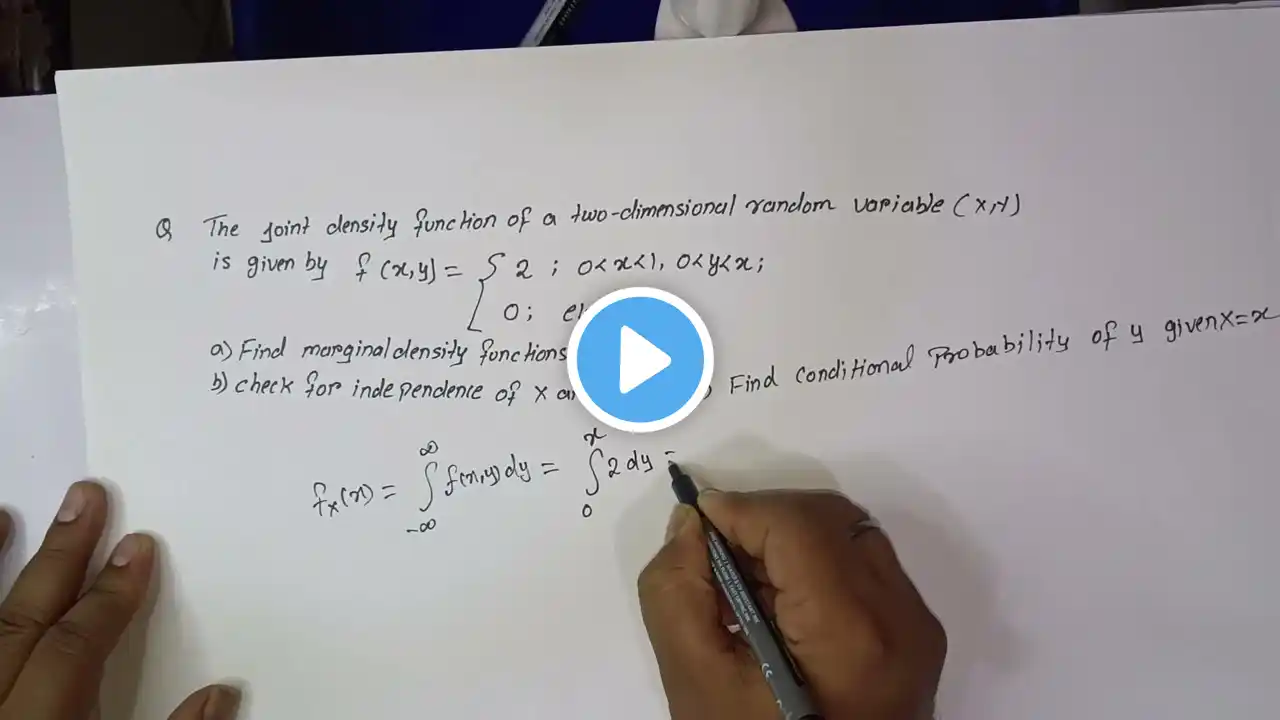 Q The joint density function of a two-dimensional random variable (X,Y)
is given by f(x,y) = { 2 ; 0<x<1, 0<y<x;
0;
a) Find marginal density functions
b) check for independence of X Find conditional Probability of y given X=x
fx(x) = ∫_{-∞}^{∞} f(x,y) dy = ∫_{0}^{x} 2 dy =